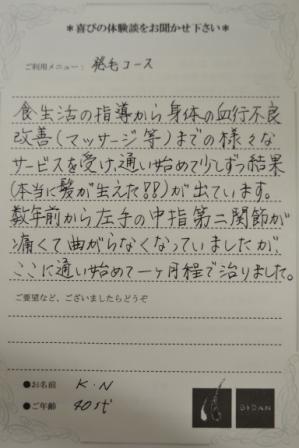 ＊喜びの体験談をお聞かせ下さい＊
ご利用メニュー： 発毛コース
食生活の指導から身体の血行不良
改善(マッサージ等)までの様々な
サービスを受け、通い始めて少しずつ結果
(本当に髪が生えた!!)が出ています。
数年前から左手の中指第二関節が
痛くて曲がらなくなっていましたが、
ここに通い始めて一ヶ月程で治りました。
ご要望など、ございましたらどうぞ
●お名前 K・N
●ご年齢 40才代